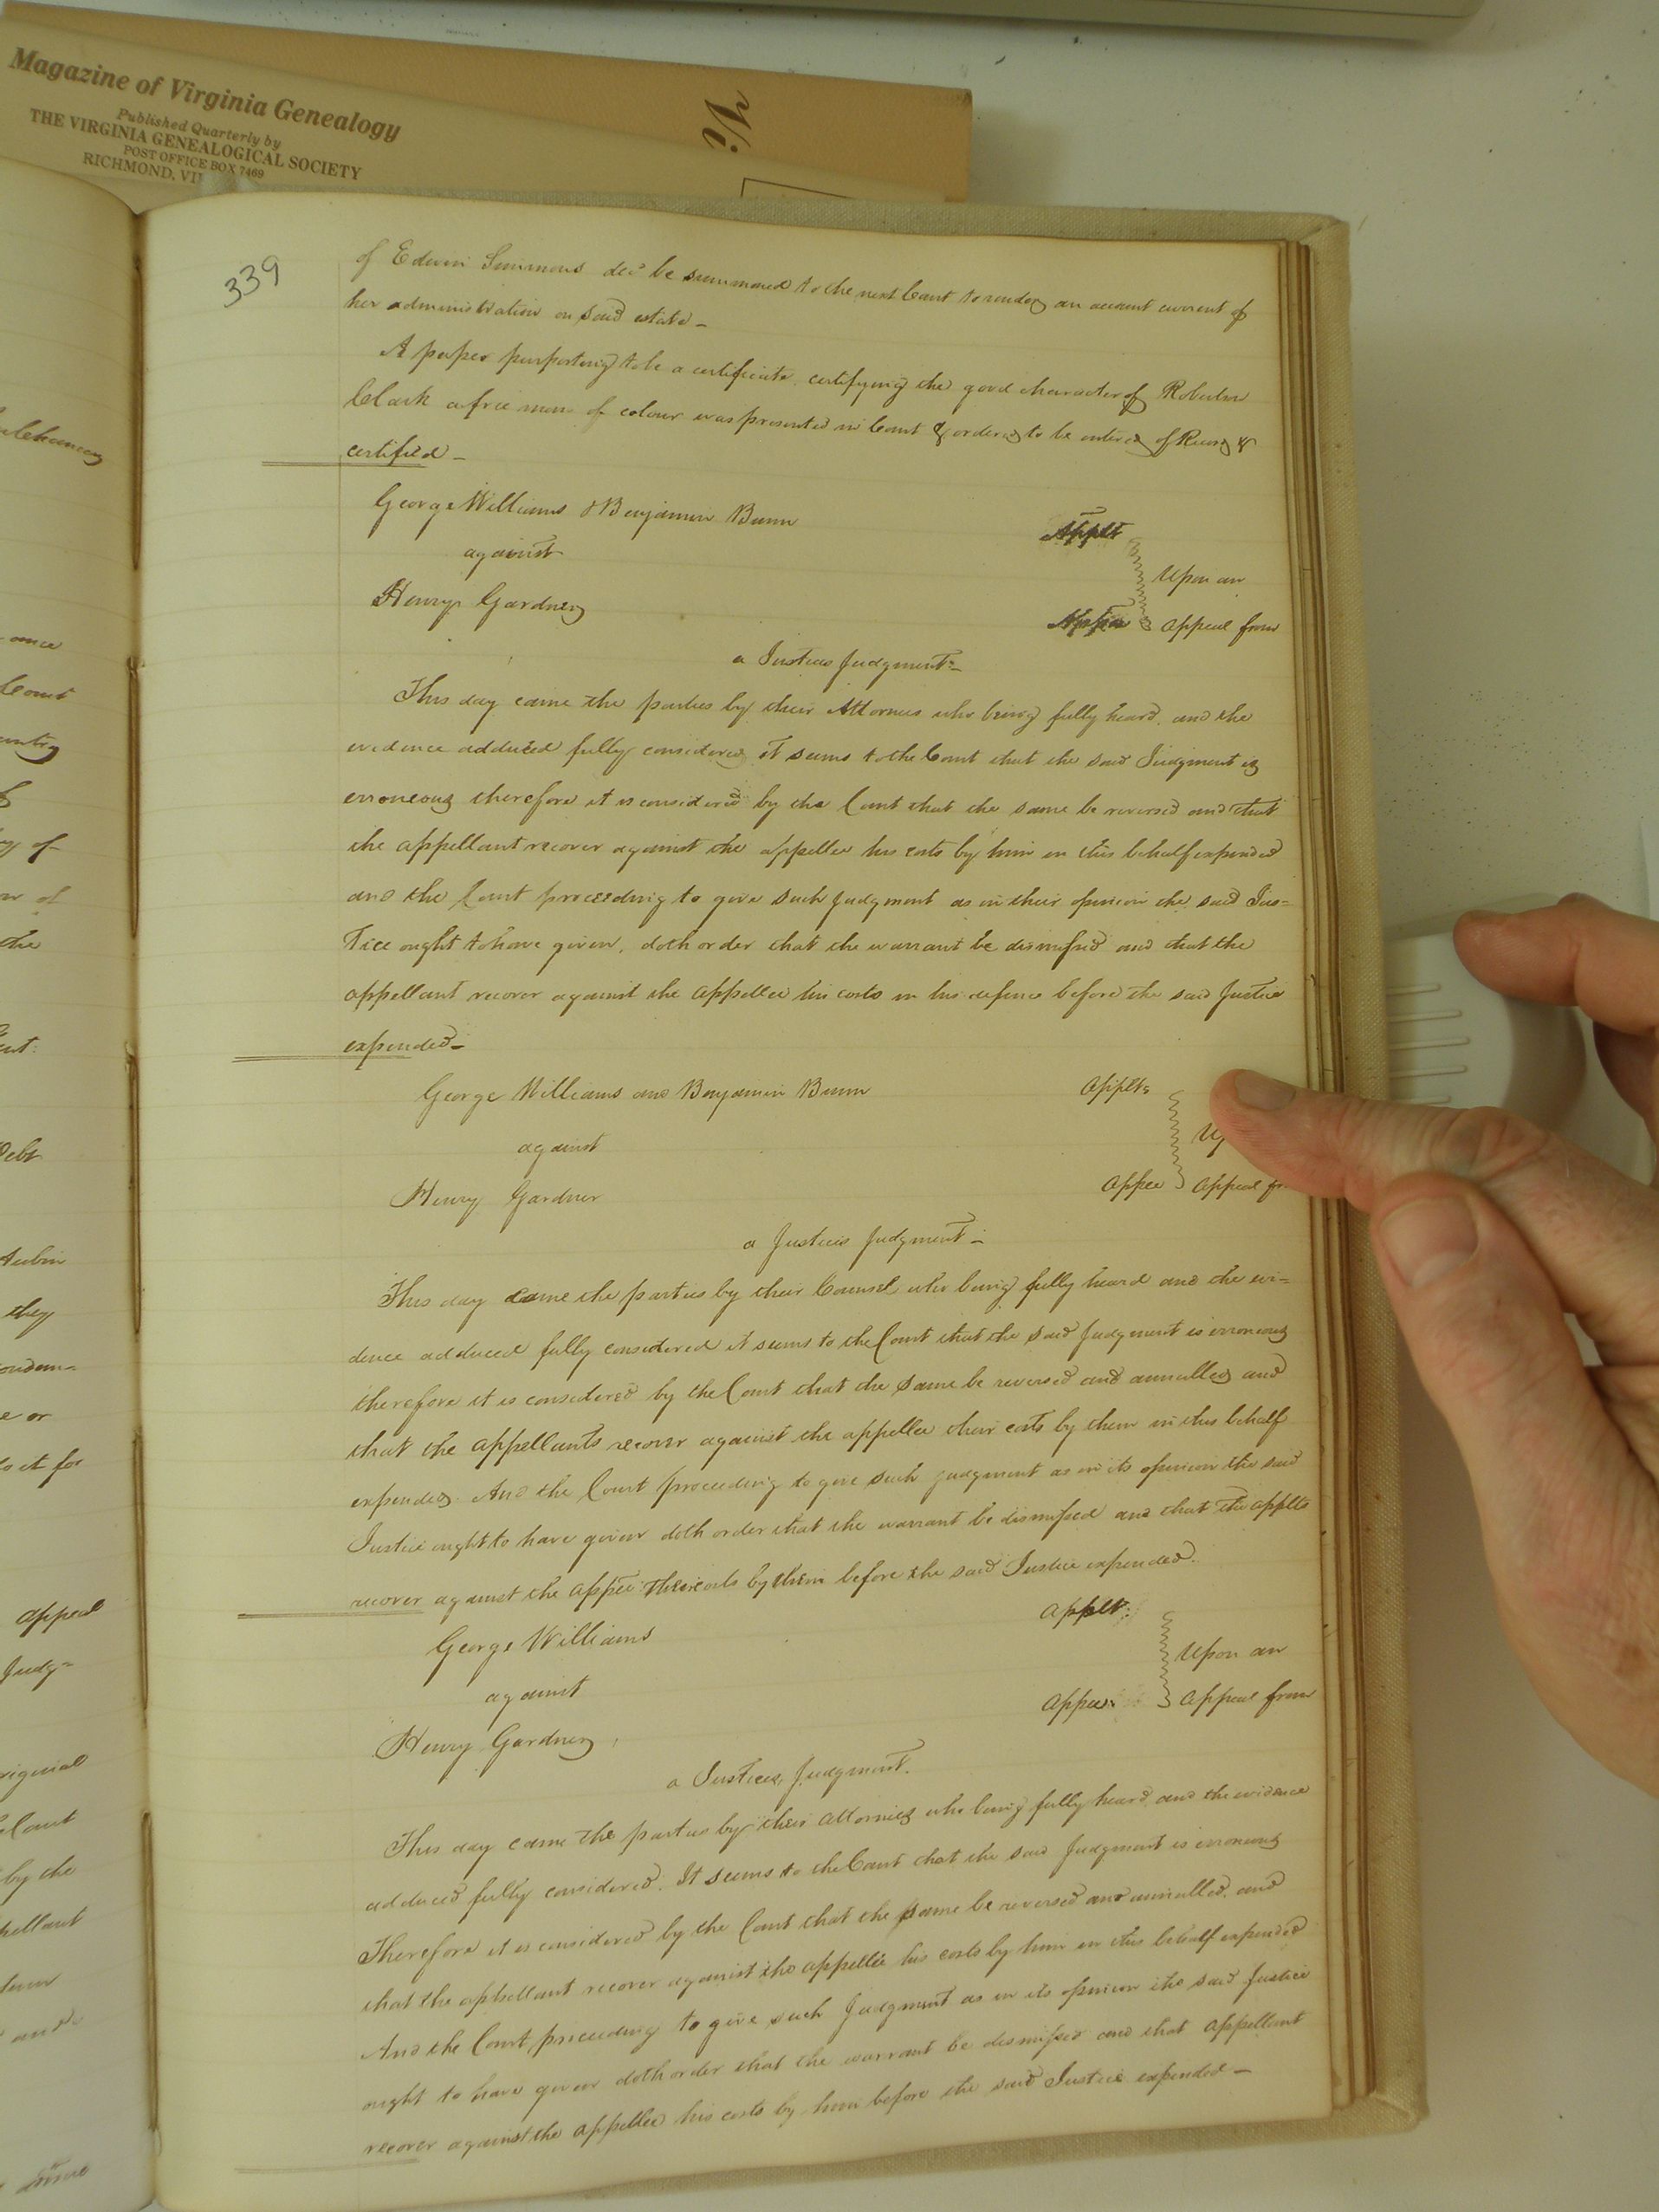 Magazine of Virginia Genealogy
Published Quarterly by
THE VIRGINIA GENEALOGICAL SOCIETY
POST OFFICE BOX 7469
RICHMOND, VI
339
of Edwin Simmons decd be summoned to the next Court to render an account current of
her administration on said estate –
A paper purporting to be a certificate certifying the good character of
Clark a free man of colour was presented in Court & ordered to be entered of Record &
certified –
George Williams & Benjamin Bunn Applt
against Upon an
Henry Gardner appeal from
a Justices Judgment –
This day came the parties by their Attornies who being fully heard, and the
evidence adduced fully considered it seems to the Court that the said Judgment is
erroneous therefore it is considered by the Court that the same be reversed and that
the appellant recover against the appellee his costs by him in this behalf expended
and the Court proceeding to give such judgment as in their opinion the said Jus=
tice ought to have given, doth order that the warrant be dismissed and that the
appellant recover against the appellee his costs in his defence before the said Justice
expended –
George Williams and Benjamin Bunn applts
against
Henry Gardner appee appeal
a Justices Judgment –
This day came the parties by their Counsel who being fully heard and the evi=
dence adduced fully considered it seems to the Court that the said Judgment is erroneous
therefore it is considered by the Court that the same be reversed and annulled and
that the appellants recover against the appellee their costs by them in this behalf
expended. And the Court proceeding to give such judgment as in its opinion the said
Justice ought to have given doth order that the warrant be dismissed and that the applts
recover against the appee their costs by them before the said Justice expended.
George Williams applt:
against Upon an
Henry Gardner appee: appeal from
a Justices Judgment.
This day came the parties by their attornies who being fully heard and the evidence
adduced fully considered. It seems to the Court that the said Judgment is erroneous
Therefore it is considered by the Court that the same be reversed and annulled, and
that the appellant recover against the appellee his costs by him in this behalf expended
And the Court proceeding to give such Judgment as in its opinion the said Justice
ought to have given doth order that the warrant be dismissed and that appellant
recover against the appellee his costs by him before the said Justice expended –
Court
of
of
the
Debt
they
e or
appeal
Judg=
Court
by the